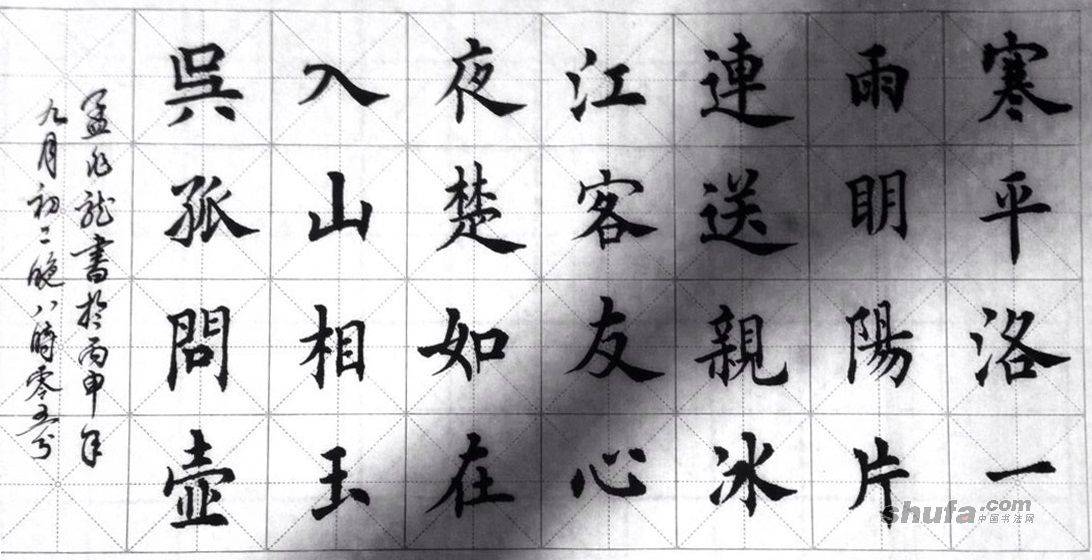 寒雨連江夜入吳
平明送客楚山孤
洛陽親友如相問
一片冰心在玉壺
孟兆龍書於丙申年
九月初二晚八時零五分
shufa.com
中国书法网